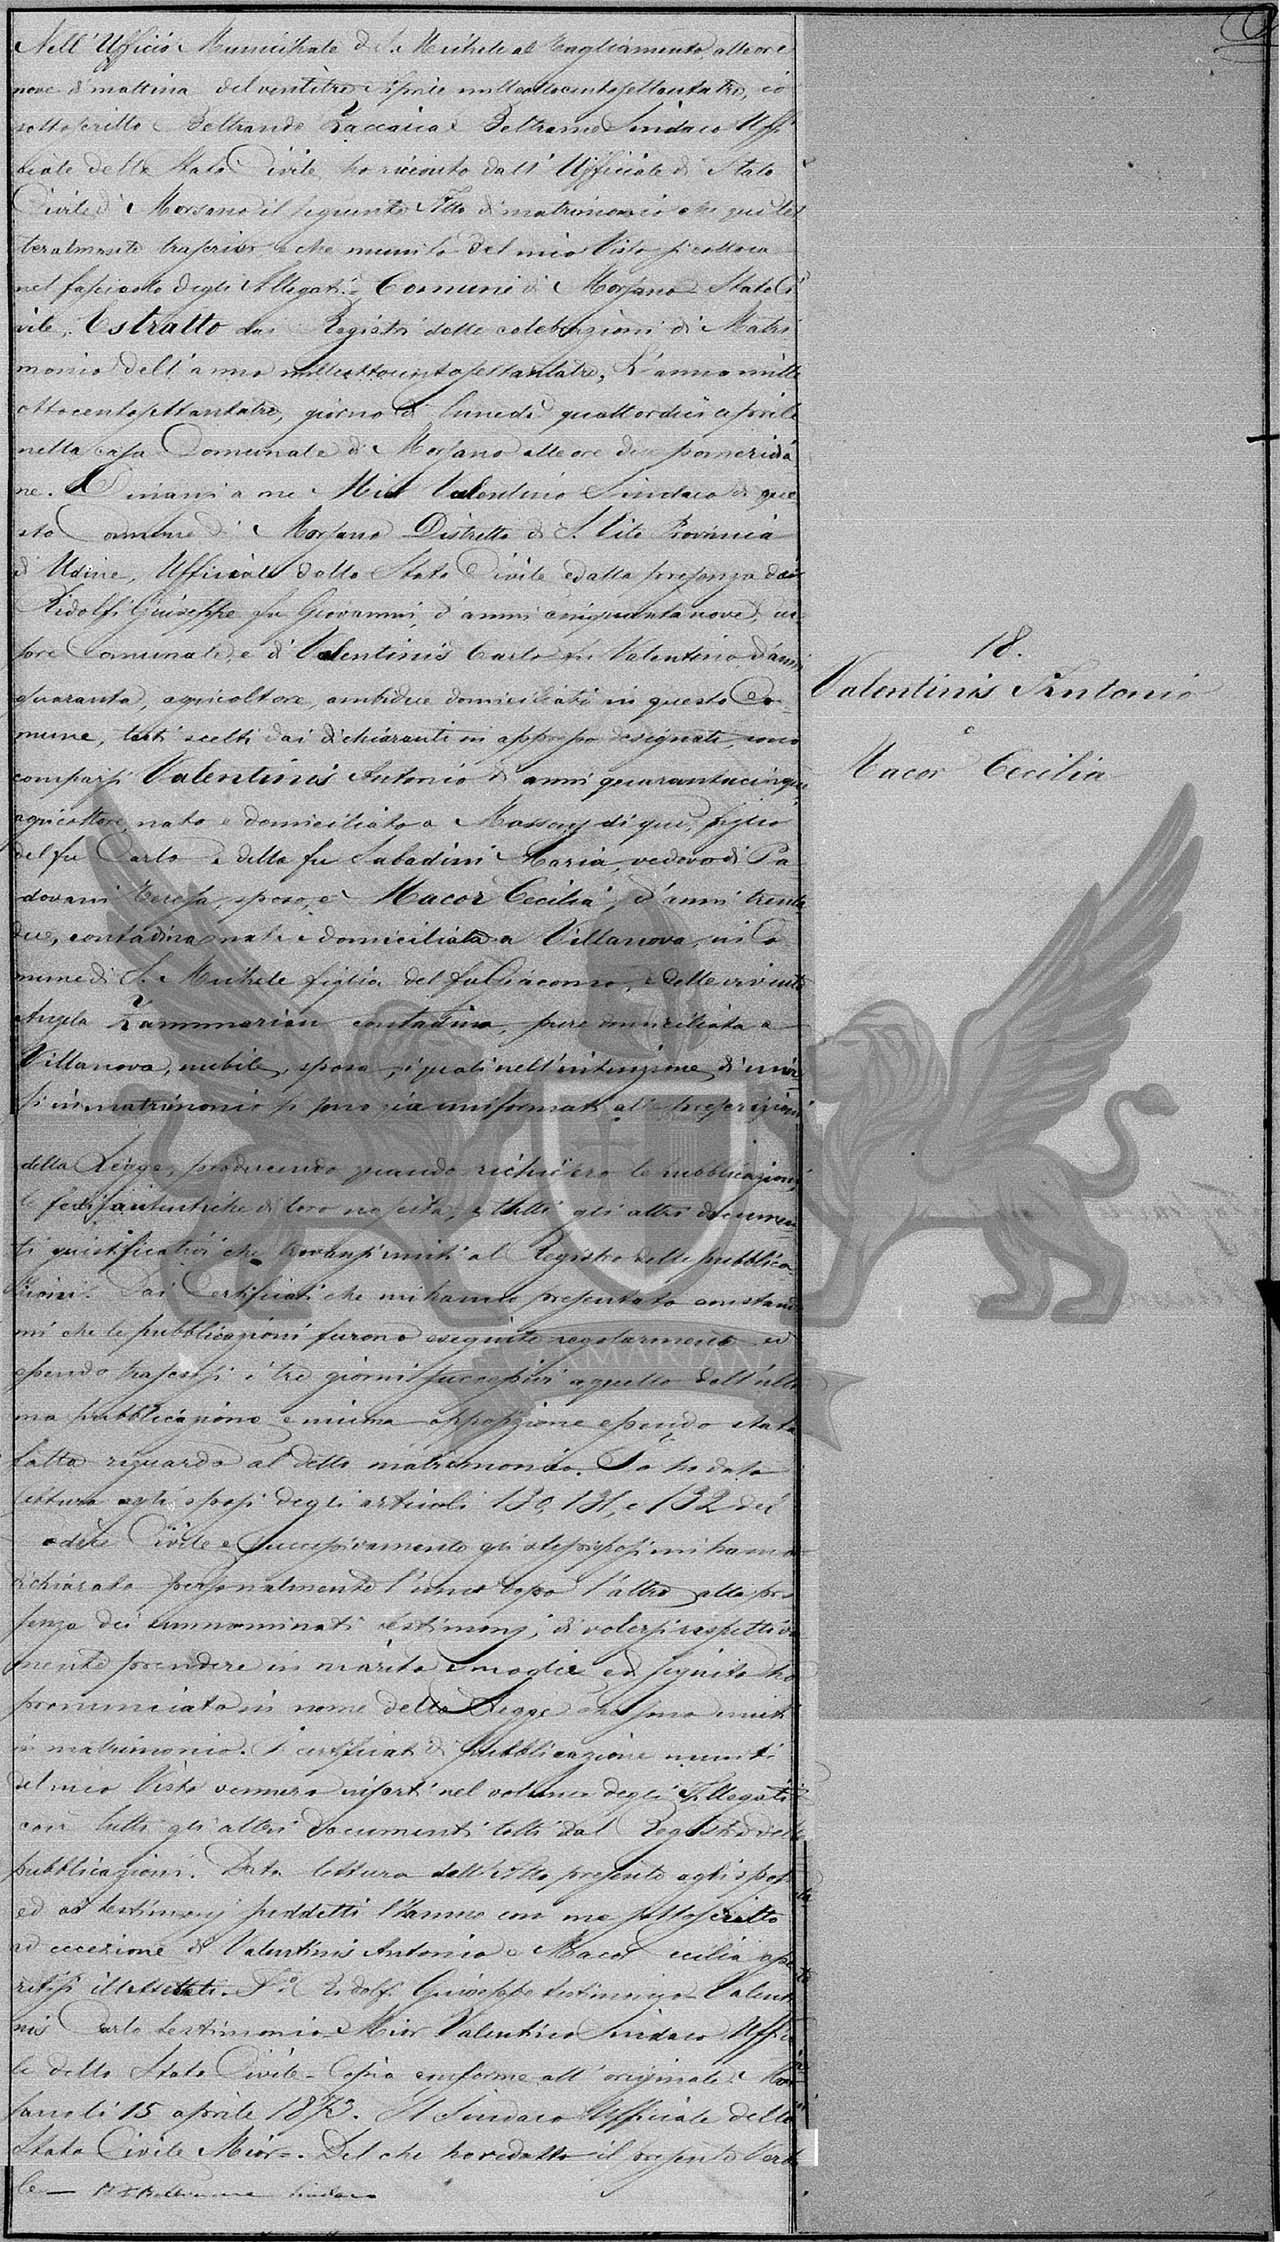 Nell' Ufficio Municipale di S. Michele al Tagliamento, alle ore
nove di mattina del ventitre Aprile milleottocentosettantatre, io
sottoscritto Beltrando Zaccaria Beltrame Sindaco Uffi
ziale dello Stato Civile, ho ricevuto dall' Ufficiale di Stato
Civile di Morsano il seguente Atto di matrimonio che qui let
teralmente trascrivo e che munito del mio Visto si colloca
nel fascicolo degli Allegati. Comune di Morsano Stato Ci
vile, Estratto dai Registri delle celebrazioni di Matri
monio dell' anno milleottocentosettantatre, L'anno mille
ottocentosettantatre, giorno di lunedi quattordici aprile
nella casa Comunale di Morsano alle ore due pomeridia
ne. Dinanzi a me Mior Valentino Sindaco di que
sto Comune di Morsano Distretto di S. Vito Provincia
di Udine, Ufficiale dello Stato Civile ed alla presenza dei
Ridolfi Giuseppe fu Giovanni, d'anni cinquantanove, cur
sore Comunale, e di Valentinis Carlo fu Valentino, d'anni
quaranta, agricoltore, ambidue domiciliati in questo Co
mune, testi scelti dai dichiaranti in appresso designati, sono
comparsi Valentinis Antonio di anni quarantacinque
agricoltore, nato e domiciliato a di qui, figlio
del fu Carlo e della fu Sabadini Maria, vedovo di Pa
dovani Teresa, sposo, e Macor Cecilia, d'anni trenta
due, contadina nata e domiciliata a Villanova, in Co
mune di S. Michele figlia del fu Giacomo, e della vivente
Angela Zammarian contadina, pure domiciliata a
Villanova, nubile, sposa, i quali nell'intenzione di unir
si in matrimonio si sono già uniformati alle prescrizioni
della Legge, producendo quando richiesero le pubblicazioni,
le fedi autentiche di loro nascita, e tutti gli altri documen
ti giustificativi che trovansi uniti al Registro delle pubblica
zioni. Dai Certificati che mi hanno presentato constando
mi che le pubblicazioni furono eseguite regolarmente ed
essendo trascorsi i tre giorni successivi a quello dell'ulti
ma pubblicazione e niuna opposizione essendo stata
fatta riguardo al detto matrimonio. Io ho dato
lettura agli sposi degli articoli 130, 131, e 132 del
odice Civile e successivamente gli stessi sposi mi hanno
dichiarato personalmente l'uno dopo l'altro alla pre
senza dei summominati testimonj, di volersi rispettiva
mente prendere in marito e moglie, ed in seguito ho
pronunciato in nome della Legge che sono uniti
in matrimonio. I certificati di pubblicazione muniti
del mio Visto vennero inserti nel volume degli Allegati
con tutti gli altri documenti tolti dal Registro delle
pubblicazioni. Data lettura dell'Atto presente agli sposi
ed ai testimonj suddetti l'hanno con me sottoscritto
ad eccezione di Valentinis Antonio e Macor Cecilia asse
ritisi illetterati. F.o Ridolfi Giuseppe testimonio Valenti
nis Carlo testimonio Mior Valentino Sindaco Uffi
le dello Stato Civile - Copia conforme all' originale. Mor
sano li 15 aprile 1873. Il Sindaco Ufficiale dello
Stato Civile Mior -. Del che ho redatto il presente Verba
le — B Z Beltrame Sindaco
18.
Valentinis Antonio
e
Macor Cecilia
ZAMARIAN